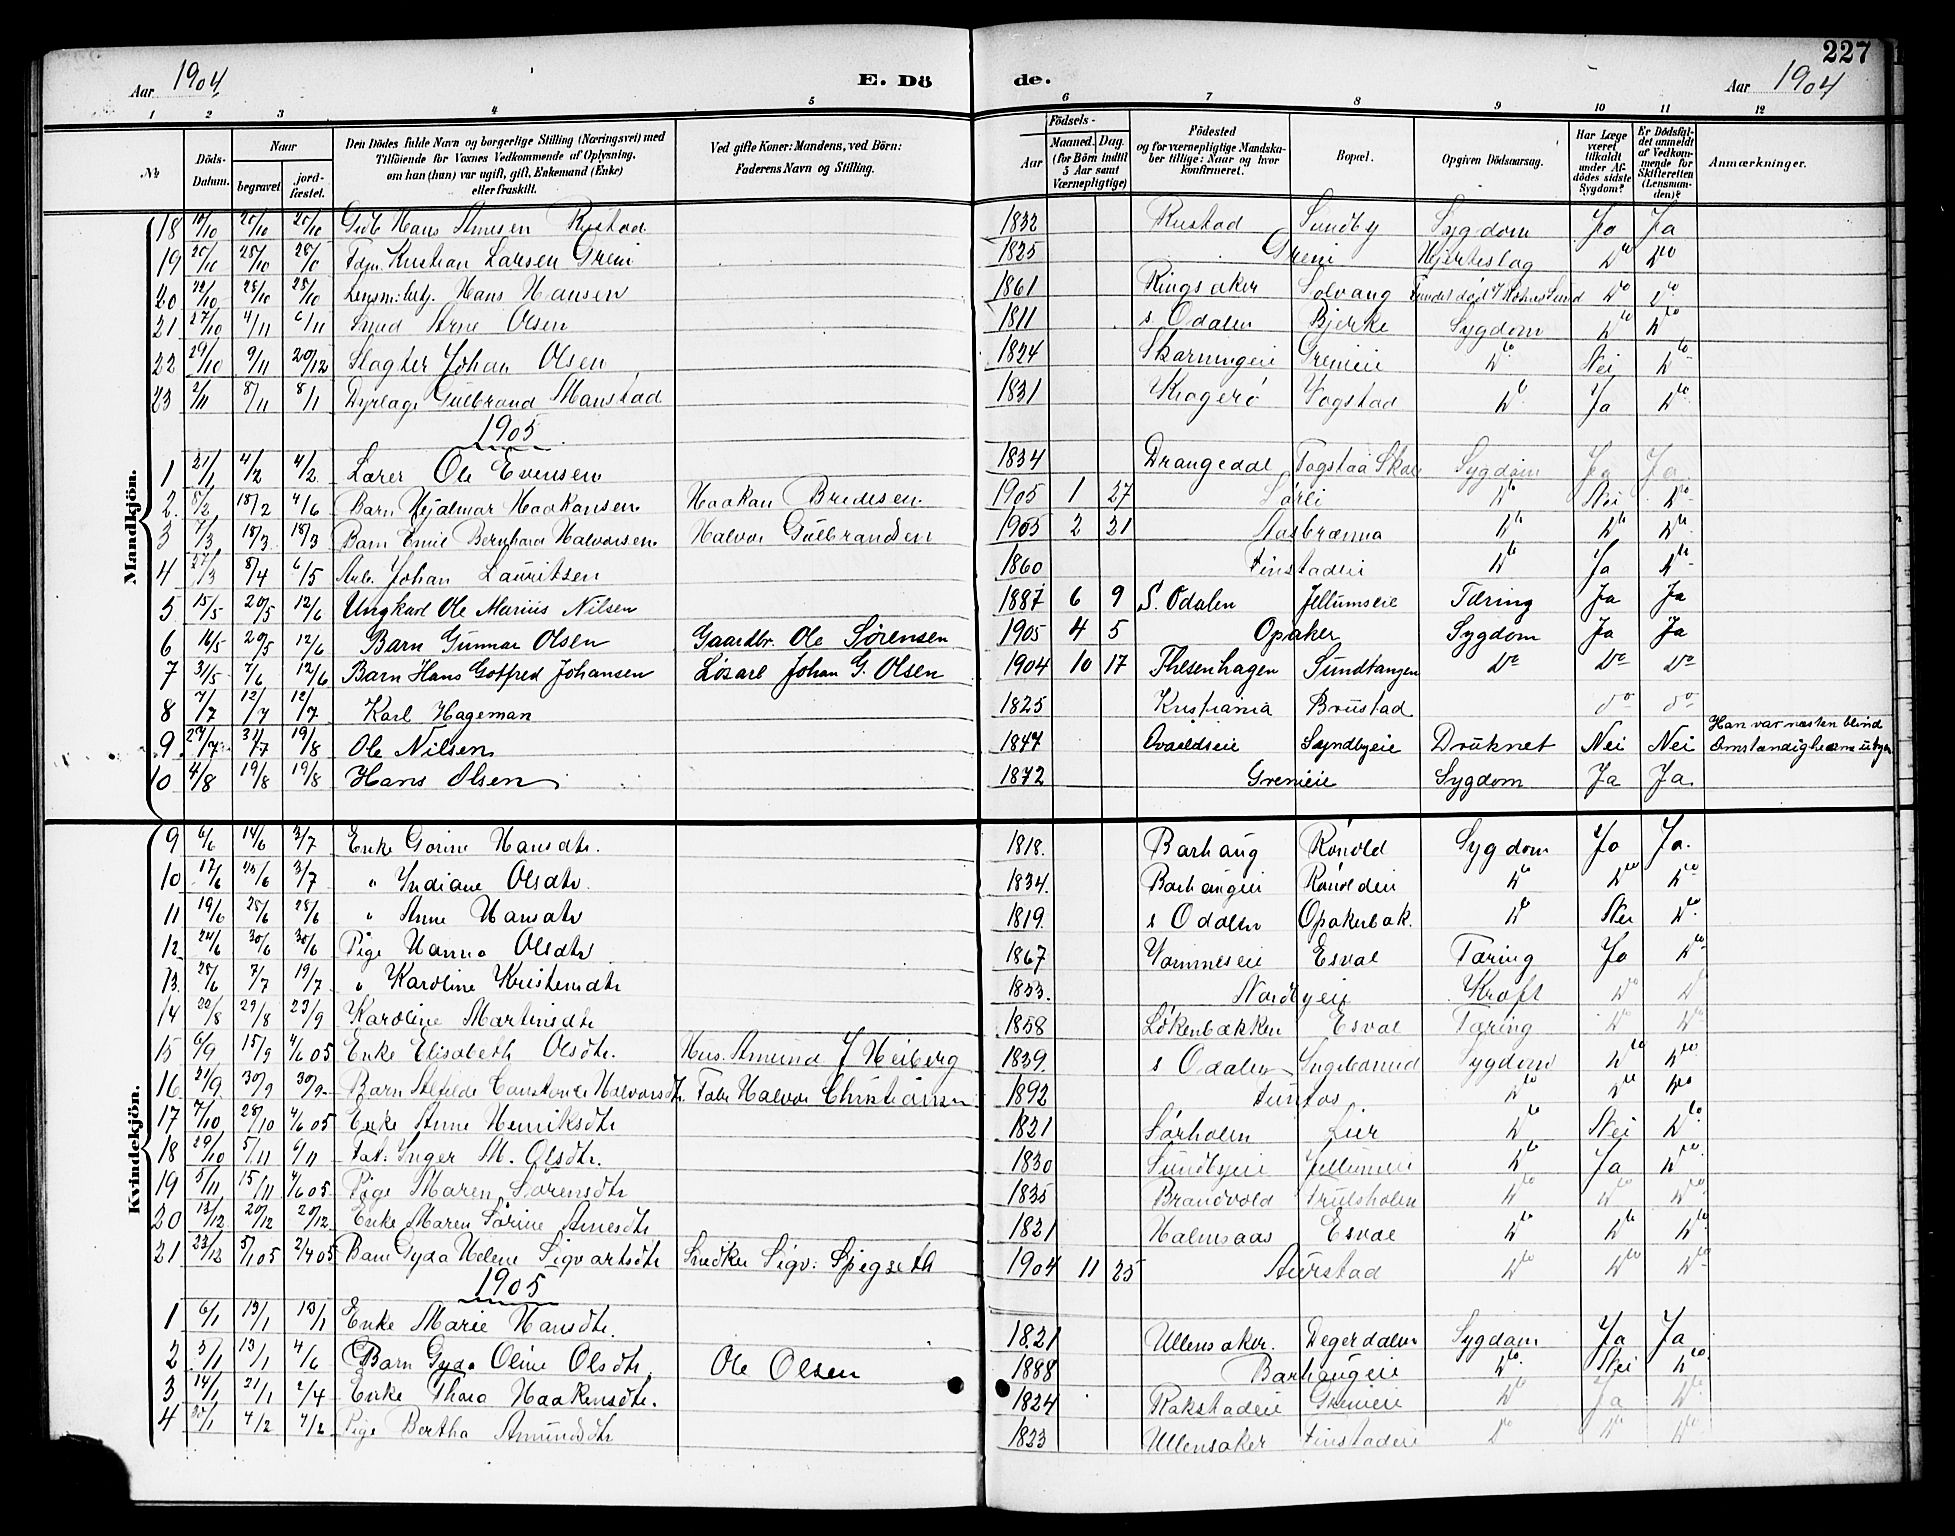 227
Aar 1904 E. Dö de. Aar 1904
1 2 3 4 5 6 7 8 9 10 11 12
No Döds-Datum. Naar begravet jord-fæstet. Den Dödes fulde Navn og borgerlige Stilling (Næringsvei) med Tilföiende for Voxnes Vedkommende af Oplysning, om han (hun) var ugift, gift, Enkemand (Enke) eller fraskilt. Ved gifte Koner: Mandens, ved Börn: Faderens Navn og Stilling. Födsels- Aar Maaned. Dag. (for Börn indtil 5 Aar samt Værnepligtige) Födested og for værnepligtige Mandskaber tillige: Naar og hvor konfirmeret. Bopæl. Opgiven Dödsaarsag. Har Læge været tilkaldt under Afdödes sidste Sygdom? Er Dödsfaldet anmeldt af Vedkommende for Skifteretten (Lensmanden)? Anmærkninger.
Mandkjön.
18 20/10 Hans Arnesen Rustad 1832 Rustad Sundby Sygdom Ja Ja
19 20/10 28/10 Kristian Larsen Greni 1825 Greni Hjerteslag Do Do
20 22/10 28/10 28/10 Lensm.betj. Hans Hansen 1861 Ringsaker Solvang Do Do
21 27/10 4/11 6/11 Smed Arne Olsen 1811 s Odalen Bjerke Sygdom Do Do
22 29/10 9/11 20/12 Slagter Johan Olsen 1824 Skarningeie Grenieie Do Nei Do
23 2/11 8/11 8/11 Gulbrand Manstad 1831 Kragerø Fogstad Do Ja Do
1905
1 21/1 4/2 4/2 Lærer Ole Evensen 1834 Drangedal Fogstad Skole Sygdom Ja Ja
2 5/2 18/2 4/6 Barn Hjalmar Haakonsen Haakan Bredesen 1905 1 27 Sørli Do Nei Do
3 7/3 18/3 18/3 Barn Emil Bernhard Halvorsen Halvor Gulbrandsen 1905 2 21 Aasbrænna Do Do Do
4 27/3 8/4 6/5 Arb. Johan Lauritsen 1860 Finstadeie Do Ja Do
5 15/5 20/5 12/6 Ungkarl Ole Marius Nilsen 1887 6 9 S. Odalen Jellumseie Tæring Ja Ja
6 16/5 20/5 12/6 Barn Gunnar Olsen Gaardbr. Ole Sørensen 1905 4 5 Opaker Sygdom Ja Ja
7 31/5 7/6 12/6 Barn Hans Gotfred Johansen Løsarb Johan G. Olsen 1904 10 17 Thesenhagen Sundtangen Do Do Do
8 7/7 12/7 12/7 Karl Hageman 1825 Kristiania Brustad do do
9 27/7 31/7 19/8 Ole Nilsen 1847 Ovaeldseie Syndbyeie Druknet Nei Nei Han var næsten blind
10 4/8 19/8 19/8 Hans Olsen 1872 Grenieie Sygdom Ja Ja
Kvindekjön.
9 6/6 14/6 3/7 Enke Gorine Hansdtr. 1818. Barhaug Rónold Sygdom Ja Ja.
10 17/6 3/7 " Indiane Olsdtr. 1834. Barhaugeie Rónoldeie Do Do Do
11 19/6 25/6 25/6 " Anne Hansdtr 1819. s Odalen Opakerbak. Do Nei Do
12 24/6 30/6 30/6 Pige Hanna Olsdtr 1867 Esval Tæring Ja Do
13. 25/6 7/7 19/7 " Karoline Kristensdtr 1853. Nordbyeie Kræft Do Do
14 22/8 29/8 23/9 Karoline Martinsdtr 1858 Lökenbækken Esval Tæring Do Do
15 6/9 15/9 4/6 05 Enke Elisabeth Olsdtr. Hus. Amund J Heiberg 1839. s Odalen Sygdom Do Do
16 21/9 30/9 30/9 Barn Constance Halvorsdtr Halvor Christiansen 1892 Do Do Do
17 7/10 28/10 4/6 05 Enke Anne Henriksdtr 1821 Sørholen Lier Do Nei Do
18 29/10 5/11 6/11 Fat. Inger M. Olsdtr. 1830 Sundbyeie Jellumeie Do Ja Do
19 5/11 15/11 4/6 05 Pige Maren Sørensdtr 1835 Brandvold Trulsholen Do Do Do
20 13/12 20/12 20/12 Enke Maren Sørine Arnesdtr 1821 Halmsaas Esval Do Do Do
21 23/12 5/1 05 2/4 05 Barn Gyda Helene Sigvartsdtr Snedker Sigv: Spigseth 1904 11 25 Aurstad Do Do Do
1905
1 6/1 13/1 13/1 Enke Marie Hansdtr. 1821 Ullensaker. Degerdalen Sygdom Ja Ja
2 5/1 13/1 4/6 Barn Gyda Oline Olsdtr. Ole Olsen 1888 Barhaugeie Do Nei Do
3 14/1 21/1 2/4 Enke Thora Haakensdtr. 1824 Rakstadeie Grenieie Do Ja Do
4 30/1 4/2 4/2 Pige Bertha Amundsdtr 1823 Ullensaker Finstadeie Do Do Do